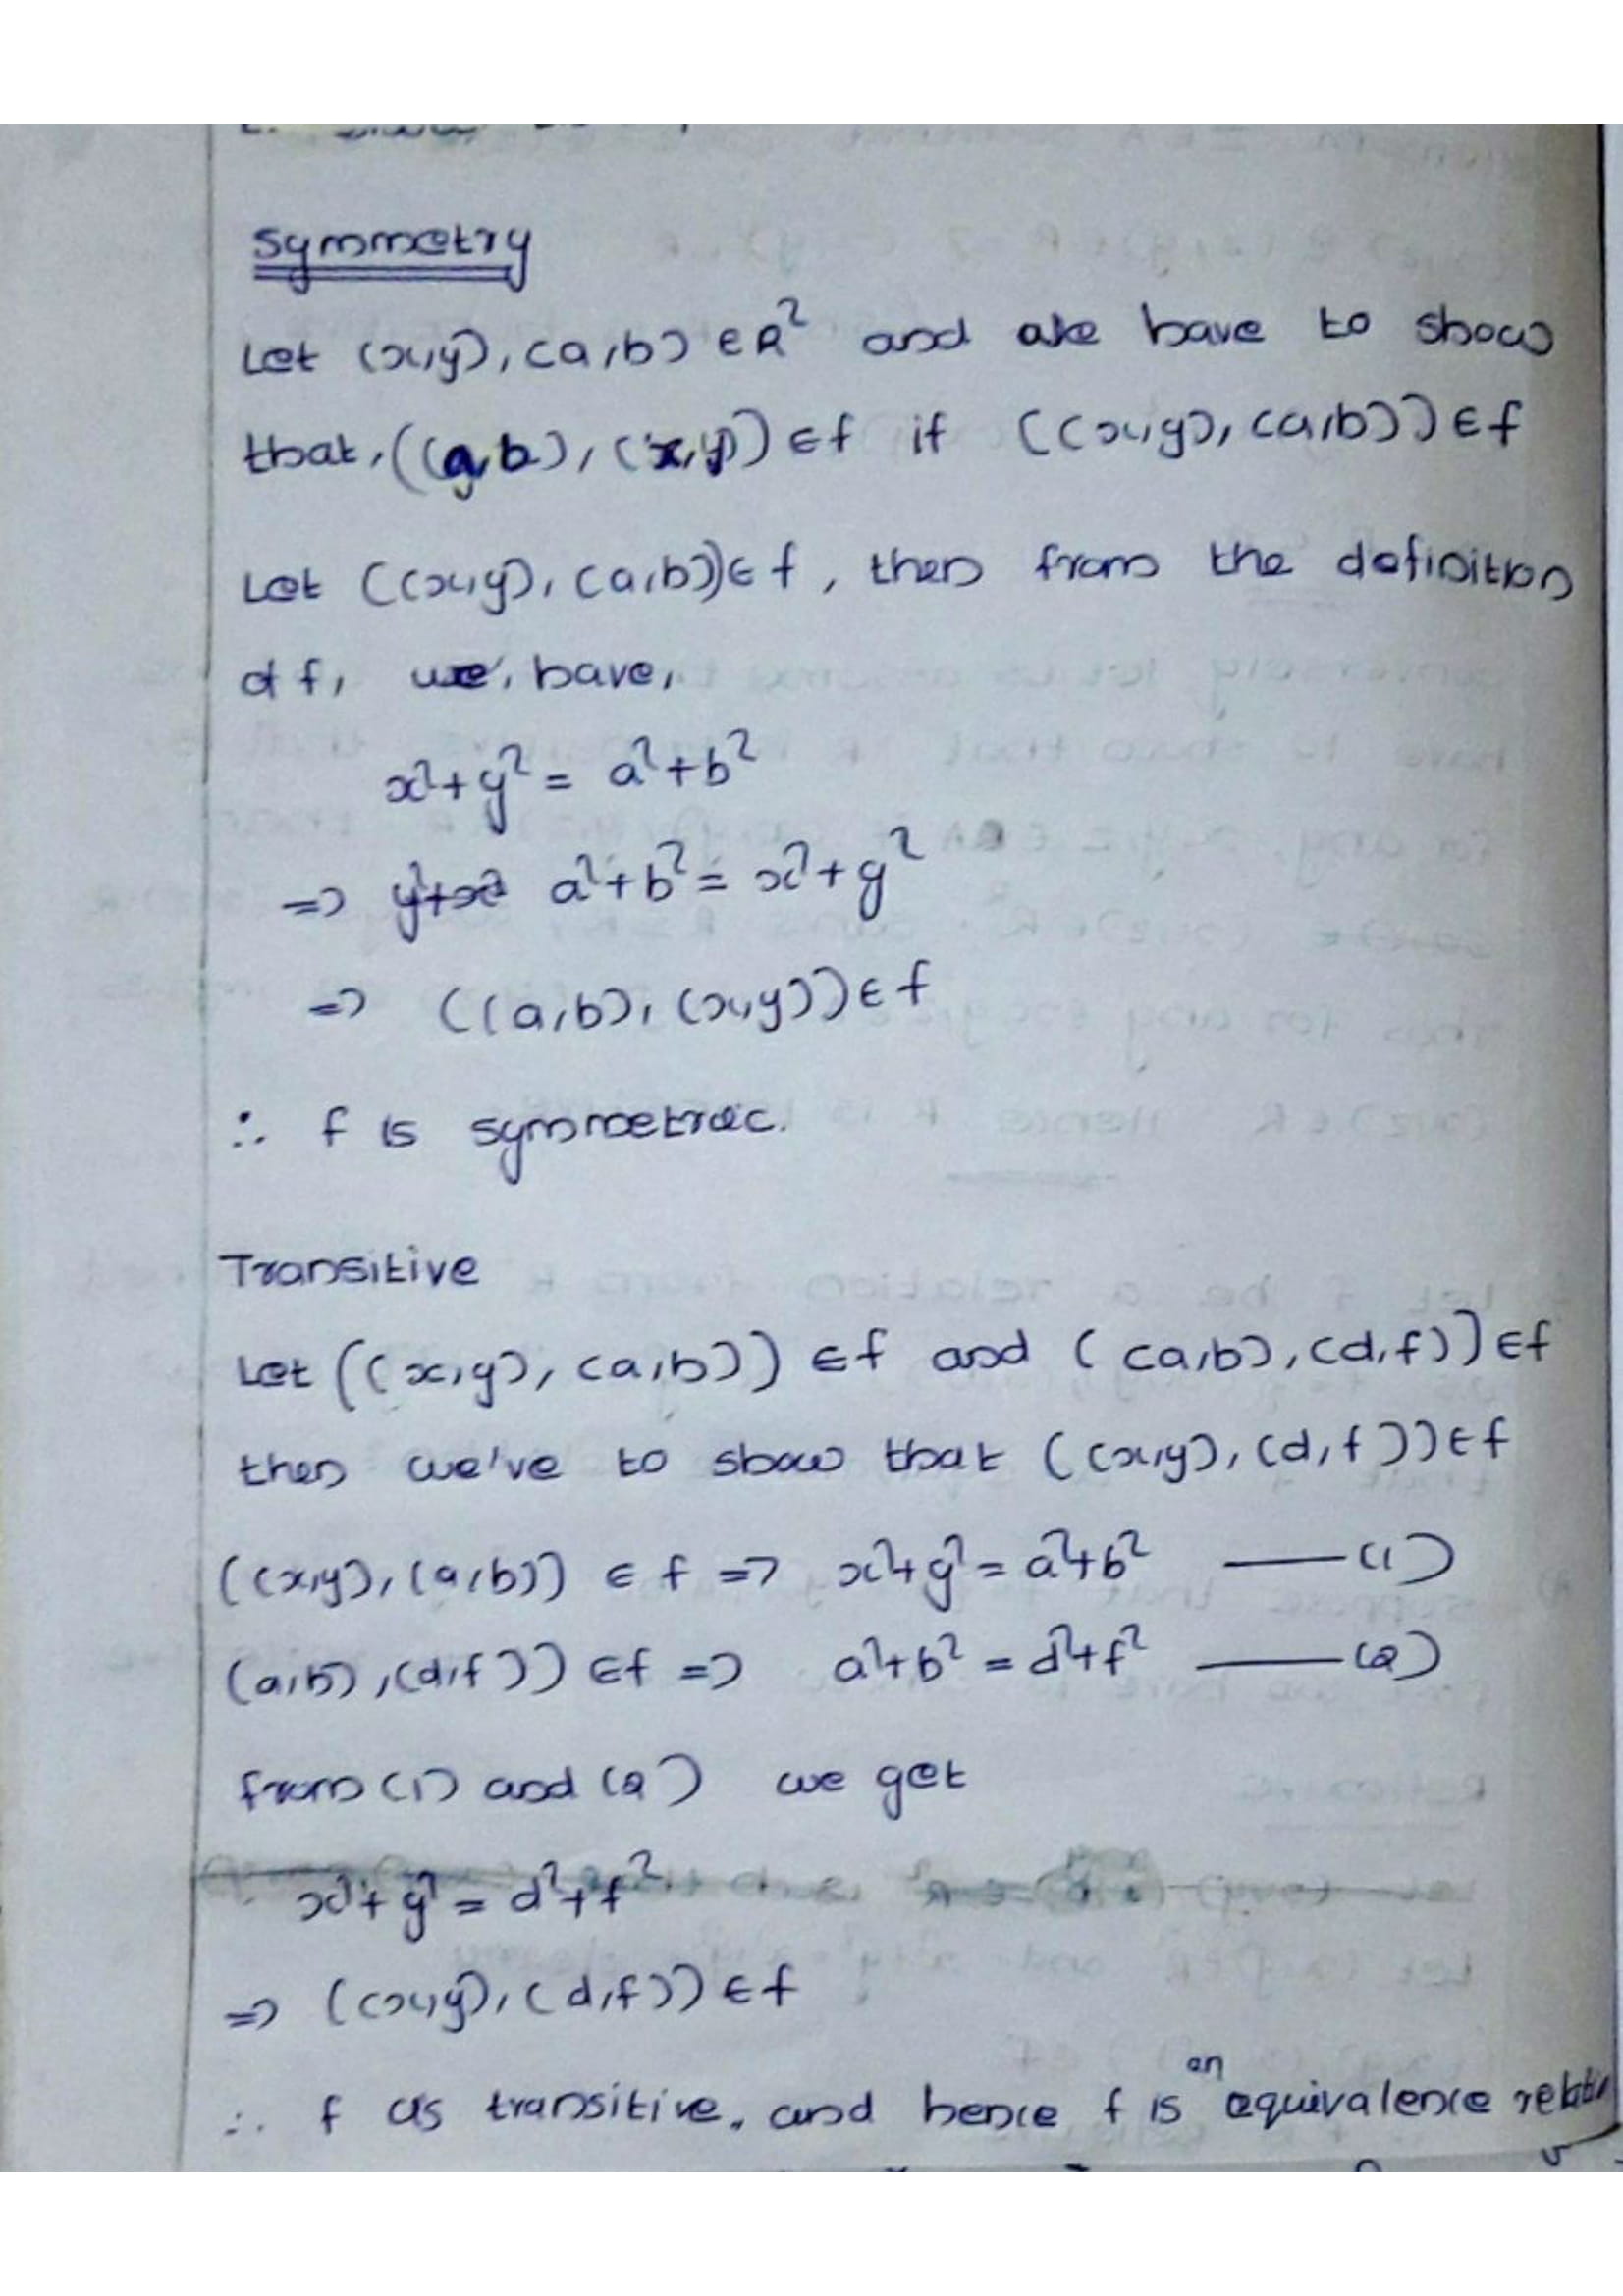 Symmetry
Let (x,y), (a,b) ∈ R² and we have to show
that, ((a,b), (x,y)) ∈ f if ((x,y), (a,b)) ∈ f
Let ((x,y), (a,b)) ∈ f, then from the definition
of f, we, have,
x²+y² = a²+b²
=> y²+x² a²+b² = x²+y²
=> ((a,b), (x,y)) ∈ f
∴ f is symmetric.
Transitive
Let ((x,y), (a,b)) ∈ f and ( (a,b), (d,f)) ∈ f
then we've to show that ((x,y), (d,f)) ∈ f
((x,y), (a,b)) ∈ f => x²+y² = a²+b² —— (1)
(a,b), (d,f)) ∈ f => a²+b² = d²+f² —— (2)
from (1) and (2) we get
x²+y² = d²+f²
=> ((x,y), (d,f)) ∈ f
∴ f is transitive, and hence f is an equivalence relation